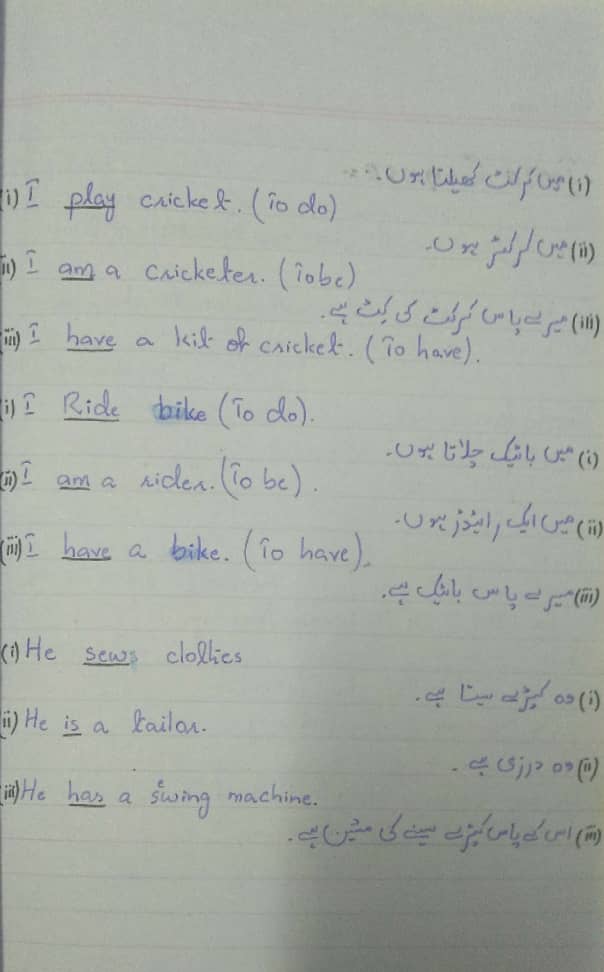 (i) میں کرکٹ کھیلتا ہوں۔
(i) I play cricket. (To do)
(ii) میں کرکٹر ہوں۔
(ii) I am a cricketer. (To be)
(iii) میرے پاس کرکٹ کی کِٹ ہے۔
(iii) I have a kit of cricket. (To have).
(i) I Ride bike (To do).
(i) میں بائیک چلاتا ہوں۔
(ii) I am a rider. (To be).
(ii) میں ایک رائیڈر ہوں۔
(iii) I have a bike. (To have).
(iii) میرے پاس بائیک ہے۔
(i) He sews clothes
(i) وہ کپڑے سیتا ہے۔
(ii) He is a tailor.
(ii) وہ درزی ہے۔
(iii) He has a sewing machine.
(iii) اس کے پاس کپڑے سینے کی مشین ہے۔